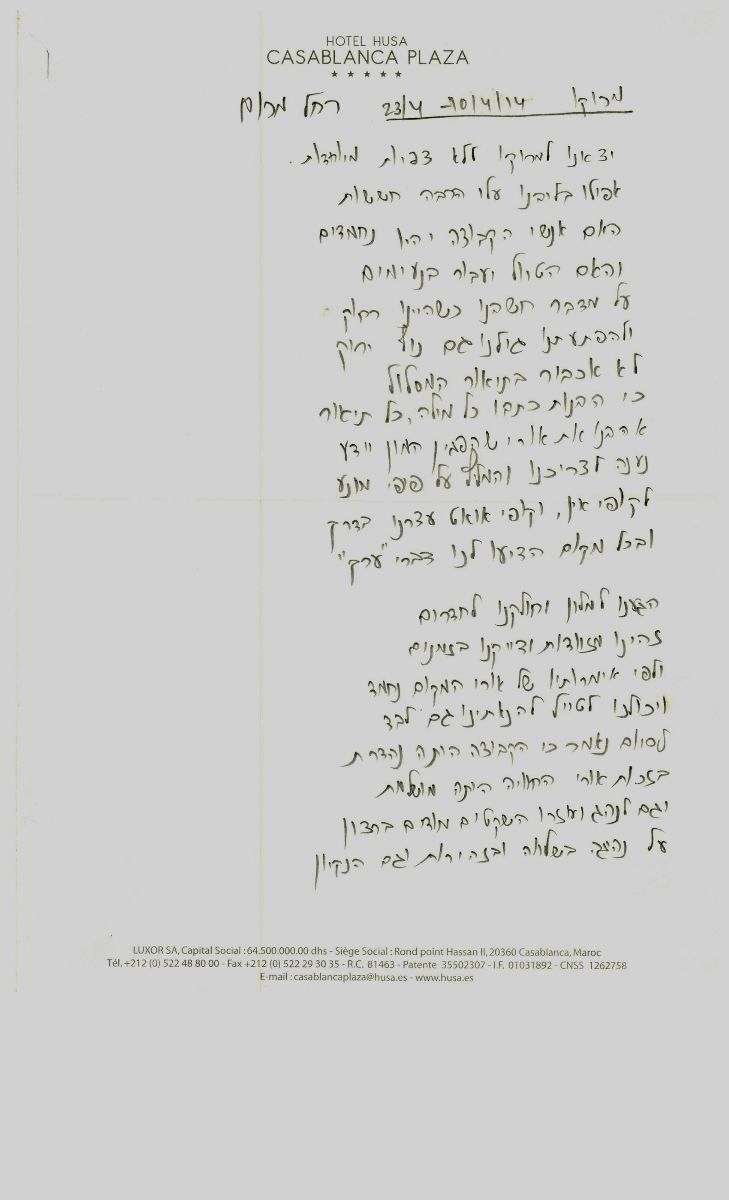 HOTEL HUSA
CASABLANCA PLAZA
★ ★ ★ ★ ★
מרוקו 10/4/14 - 23/4 רחל מרום
יצאנו למרוקו ללא צפיות מיוחדות.
אפילו בליבנו עלו הרבה חששות
האם אנשי הקבוצה יהיו נחמדים
והאם הטיול יעבור בנעימים
על מדבר חשבנו כשהיינו רחוק
ולהפתעתנו גילנו גם נוף ירוק
לא אכביר בתיאור המסלול
כי הבנות כתבו כל מילה, כל תיאור
אהבנו את אורי שקפצין המון יידע
נענה לצריכנו והמליל על פיפי מונע
לקופי אין, וקופי אואט עצרנו בדרך
ובכל מקום הציעו לנו דברי "ערק"
הגענו למלון וחולקנו לחדרים
זהינו מזוודות ודייקנו בזמנים
ולפי אימרותיו של אורי המקום נחמד
ויכולנו לטייל להנאתינו גם לבד
לסיום נאמר כי הקבוצה היתה נהדרת
בזכות אורי החוויה היתה מושלמת
וגם לנהג ועוזרו השקטים מודים ברצון
על נהיגה בשלווה ובזהירות וגם הנקיון
LUXOR SA, Capital Social : 64.500.000.00 dhs - Siège Social : Rond point Hassan II, 20360 Casablanca, Maroc
Tél. +212 (0) 522 48 80 00 - Fax +212 (0) 522 29 30 35 - R.C. 81463 - Patente 35502307 - I.F. 01031892 - CNSS 1262758
E-mail : casablancaplaza@husa.es - www.husa.es